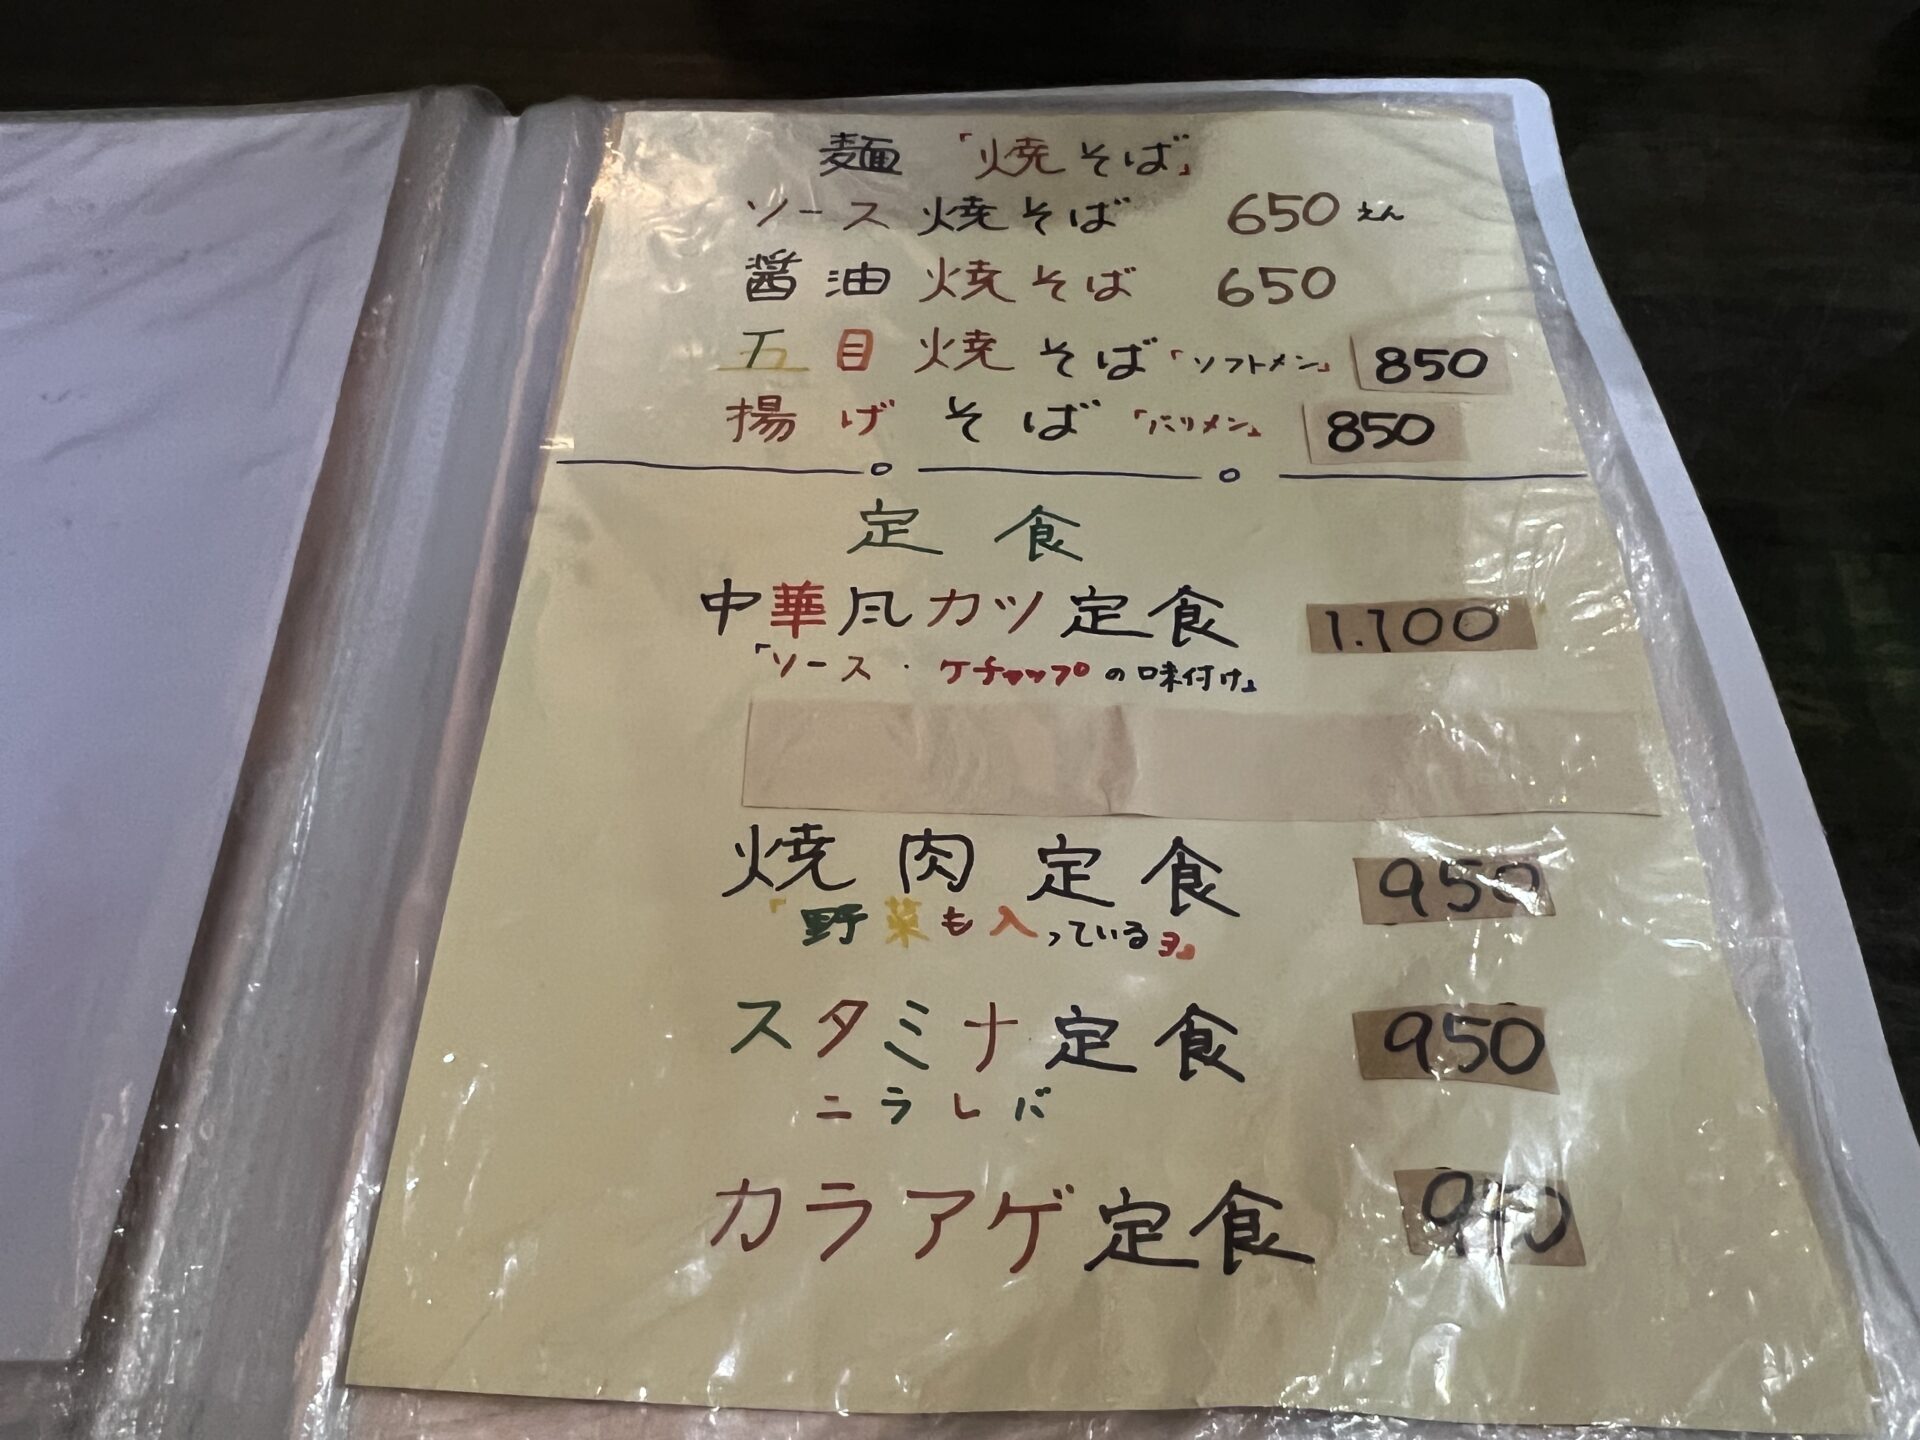 麺 「焼そば」
ソース焼そば 650 えん
醤油焼そば 650
五目焼そば「ソフトメン」 850
揚げそば「バリメン」 850
定食
中華風カツ定食 1.100
「ソース・ケチャップの味付け」
焼肉定食 950
「野菜も入っているヨ」
スタミナ定食 950
ニラレバ
カラアゲ定食